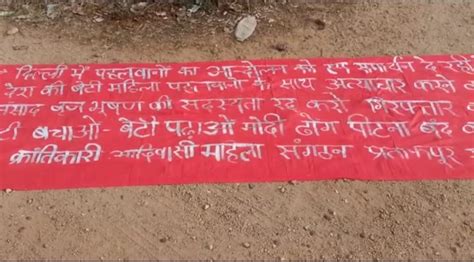 दिल्ली में पहलवानों का आन्दोलन को हम समर्थन दे रहे
देश की बेटी महिला पहलवानों के साथ अत्याचार करने
सांसद बृज भूषण की सदस्यता रद्द करो गिरफ्तार
टी बचाओ- बेटी पढ़ाओ मोदी ढोंग पीटना बंद
क्रांतिकारी आदिवासी महिला संगठन